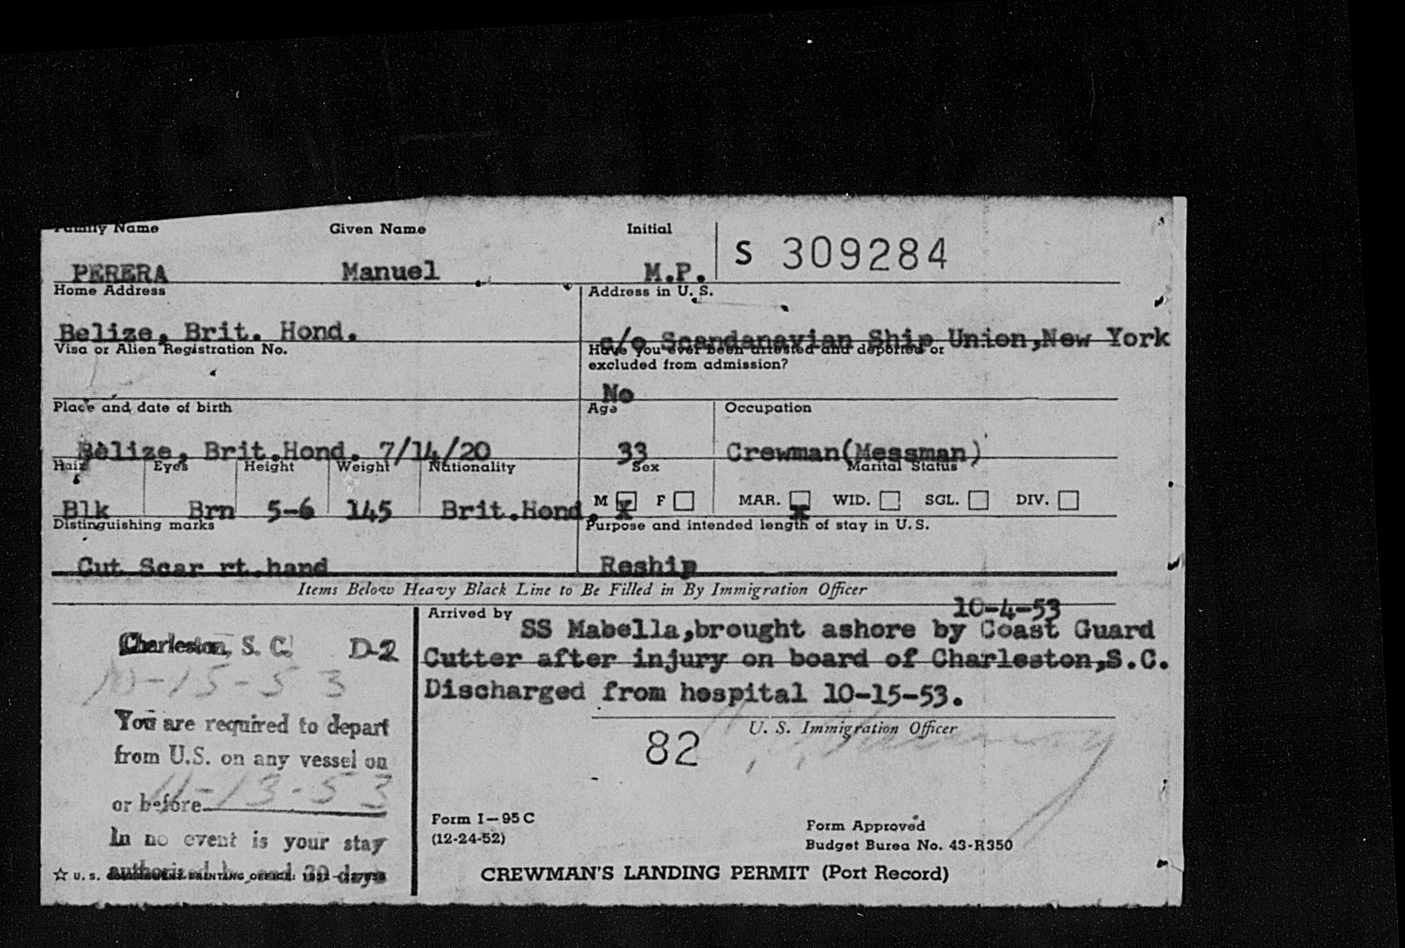 Family Name Given Name Initial S 309284
PERERA Manuel M.P.
Home Address Address in U. S.
Belize, Brit. Hond. c/o Scandanavian Ship Union,New York
Visa or Alien Registration No. Have you ever been arrested and deported or
excluded from admission?
No
Place and date of birth Age Occupation
Belize, Brit.Hond. 7/14/20 33 Crewman(Messman)
Hair Eyes Height Weight Nationality Sex Marital Status
Blk Brn 5-6 145 Brit.Hond. M X F MAR. X WID. SGL. DIV.
Distinguishing marks Purpose and intended length of stay in U. S.
Cut Scar rt.hand Reship
Items Below Heavy Black Line to Be Filled in By Immigration Officer
Arrived by 10-4-53
SS Mabella,brought ashore by Coast Guard
Cutter after injury on board of Charleston,S.C.
Discharged from hospital 10-15-53.
U. S. Immigration Officer
82
Charleston, S. C. D-2
10-15-53
You are required to depart
from U.S. on any vessel on
or before 11-13-53
In no event is your stay
authorized beyond 29 days
☆ U. S. GOVERNMENT PRINTING OFFICE:
Form I-95 C
(12-24-52)
Form Approved
Budget Burea No. 43-R350
CREWMAN'S LANDING PERMIT (Port Record)